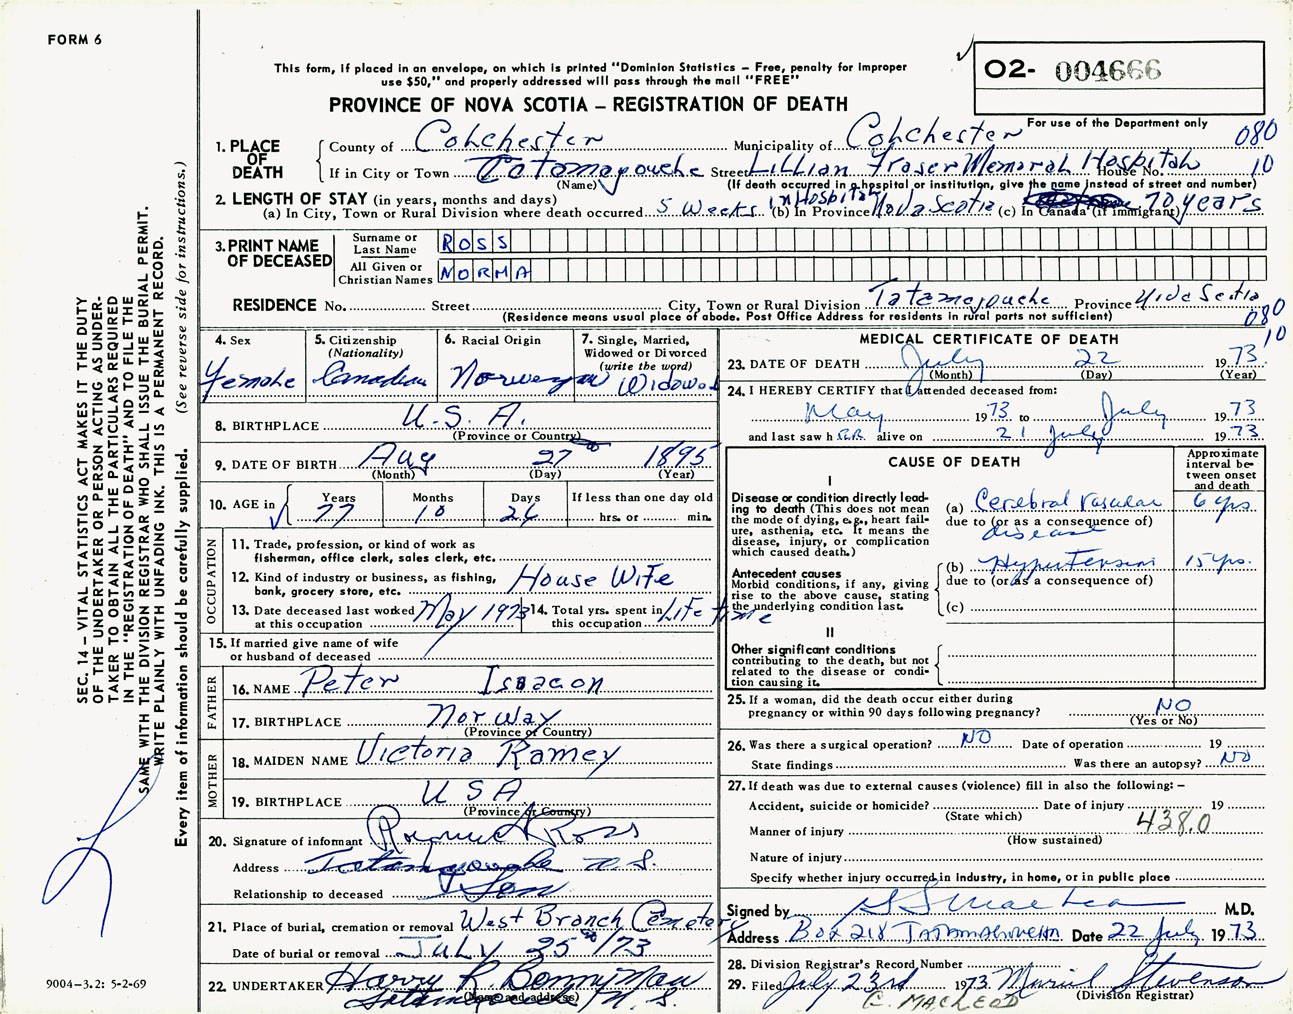 FORM 6
This form, if placed in an envelope, on which is printed "Dominion Statistics – Free, penalty for improper
use $50," and properly addressed will pass through the mail "FREE"
PROVINCE OF NOVA SCOTIA – REGISTRATION OF DEATH
02- 004666
For use of the Department only
080
10
1. PLACE OF DEATH
County of Colchester Municipality of Colchester
If in City or Town Tatamagouche Street Lillian Fraser Memorial Hospital House No.
(Name) (If death occurred in a hospital or institution, give the name instead of street and number)
2. LENGTH OF STAY (in years, months and days)
(a) In City, Town or Rural Division where death occurred 5 Weeks in Hospital (b) In Province Nova Scotia (c) In Canada (if immigrant) 70 years
3. PRINT NAME OF DECEASED
Surname or Last Name ROSS
All Given or Christian Names NORMA
RESIDENCE No. Street City, Town or Rural Division Tatamagouche Province Nova Scotia
(Residence means usual place of abode. Post Office Address for residents in rural parts not sufficient)
080
10
4. Sex Female
5. Citizenship (Nationality) Canadian
6. Racial Origin Norwegian
7. Single, Married, Widowed or Divorced (write the word) Widowed
8. BIRTHPLACE U.S.A.
(Province or Country)
9. DATE OF BIRTH Aug 27 1895
(Month) (Day) (Year)
10. AGE in Years 77 Months 10 Days 26 If less than one day old hrs. or min.
OCCUPATION
11. Trade, profession, or kind of work as
fisherman, office clerk, sales clerk, etc.
12. Kind of industry or business, as fishing,
bank, grocery store, etc. House Wife
13. Date deceased last worked
at this occupation May 1973
14. Total yrs. spent in
this occupation Life time
15. If married give name of wife
or husband of deceased
FATHER
16. NAME Peter Isaacon
17. BIRTHPLACE Norway
(Province or Country)
MOTHER
18. MAIDEN NAME Victoria Ramey
19. BIRTHPLACE USA
(Province or Country)
20. Signature of informant Ross
Address Tatamagouche N.S.
Relationship to deceased Son
21. Place of burial, cremation or removal West Branch Cemetery
Date of burial or removal July 25th/73
22. UNDERTAKER Harry R Bonnyman
(Name and address) Tatamagouche N.S.
MEDICAL CERTIFICATE OF DEATH
23. DATE OF DEATH July 22 1973
(Month) (Day) (Year)
24. I HEREBY CERTIFY that I attended deceased from:
May 1973 to July 1973
and last saw her alive on 21 July 1973
CAUSE OF DEATH
Approximate interval between onset and death
I
Disease or condition directly leading to death (This does not mean the mode of dying, e.g., heart failure, asthenia, etc. It means the disease, injury, or complication which caused death.)
(a) Cerebral Vascular 6 yrs.
due to (or as a consequence of)
disease
Antecedent causes
Morbid conditions, if any, giving rise to the above cause, stating the underlying condition last.
(b) Hypertension 15 yrs.
due to (or as a consequence of)
(c)
II
Other significant conditions
contributing to the death, but not related to the disease or condition causing it.
25. If a woman, did the death occur either during
pregnancy or within 90 days following pregnancy? NO
(Yes or No)
26. Was there a surgical operation? NO Date of operation 19
State findings Was there an autopsy? NO
27. If death was due to external causes (violence) fill in also the following: –
Accident, suicide or homicide? Date of injury 19
(State which)
Manner of injury 438.0
(How sustained)
Nature of injury
Specify whether injury occurred in industry, in home, or in public place
Signed by M.D.
Address Box 218 Tatamagouche Date 22 July 1973
28. Division Registrar's Record Number
29. Filed July 23rd 1973 Muriel Stevenson
(Division Registrar)
C. MACLEOD
SEC. 14 – VITAL STATISTICS ACT MAKES IT THE DUTY
OF THE UNDERTAKER OR PERSON ACTING AS UNDER-
TAKER TO OBTAIN ALL THE PARTICULARS REQUIRED
IN THE "REGISTRATION OF DEATH" AND TO FILE THE
SAME WITH THE DIVISION REGISTRAR WHO SHALL ISSUE THE BURIAL PERMIT.
WRITE PLAINLY WITH UNFADING INK. THIS IS A PERMANENT RECORD.
Every item of information should be carefully supplied. (See reverse side for instructions.)
9004-3.2: 5-2-69